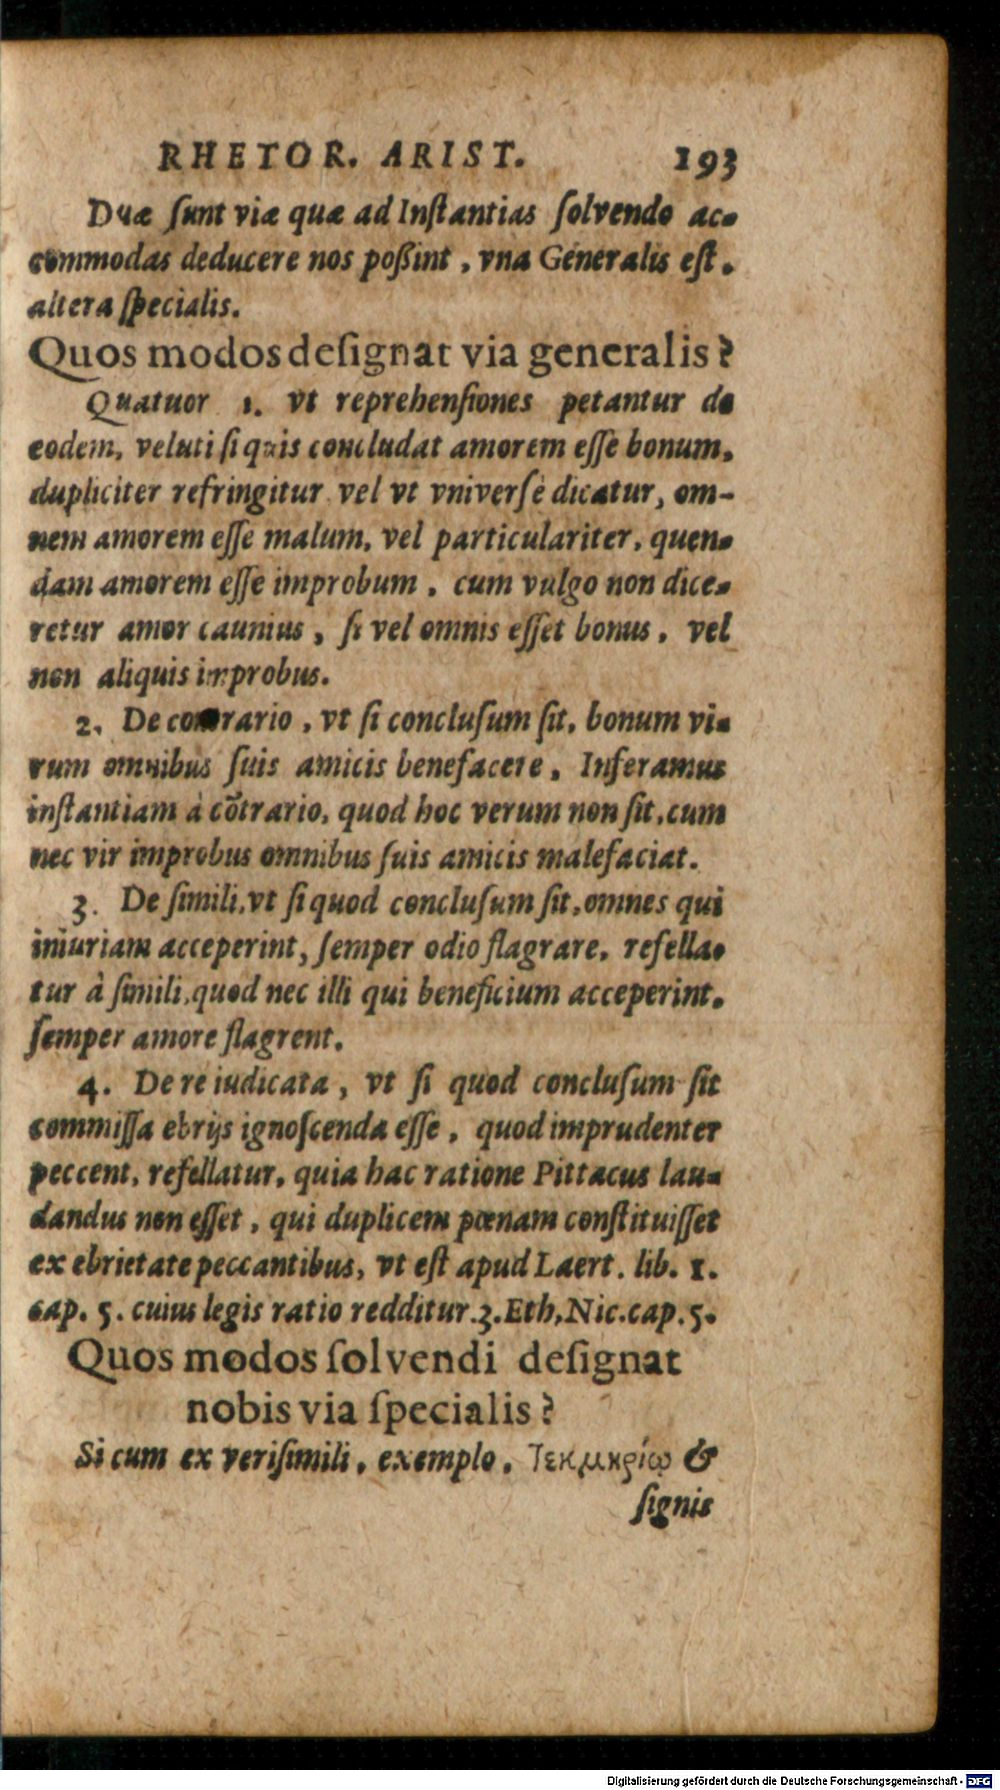 RHETOR. ARIST. 193
Duæ ſunt viæ quæ ad Inſtantias ſolvendo ac-
commodas deducere nos poßint, vna Generalis eſt.
altera ſpecialis.
Quos modos deſignat via generalis?
Quatuor 1. vt reprehenſiones petantur de
eodem, veluti ſi quis concludat amorem eſſe bonum,
dupliciter refringitur vel vt vniverſè dicatur, om-
nem amorem eſſe malum, vel particulariter, quen-
dam amorem eſſe improbum, cum vulgo non dice-
retur amor caunius, ſi vel omnis eſſet bonus, vel
non aliquis improbus.
2. De contrario, vt ſi concluſum ſit, bonum vi-
rum omnibus ſuis amicis benefacere, Inferamus
inſtantiam à cõtrario, quod hoc verum non ſit, cum
nec vir improbus omnibus ſuis amicis malefaciat.
3. De ſimili, vt ſi quod concluſum ſit, omnes qui
iniuriam acceperint, ſemper odio flagrare, refella-
tur à ſimili, quod nec illi qui beneficium acceperint.
ſemper amore flagrent.
4. De re iudicata, vt ſi quod concluſum ſit
commiſſa ebrijs ignoſcenda eſſe, quod imprudenter
peccent, refellatur, quia hac ratione Pittacus lau-
dandus non eſſet, qui duplicem pœnam conſtituiſſet
ex ebrietate peccantibus, vt eſt apud Laert. lib. 1.
cap. 5. cuius legis ratio redditur. 3. Eth, Nic. cap. 5.
Quos modos ſolvendi deſignat
nobis via ſpecialis?
Si cum ex veriſimili, exemplo, Τεκμηρίῳ &
ſignis
Digitalisierung gefördert durch die Deutsche Forschungsgemeinschaft - DFG